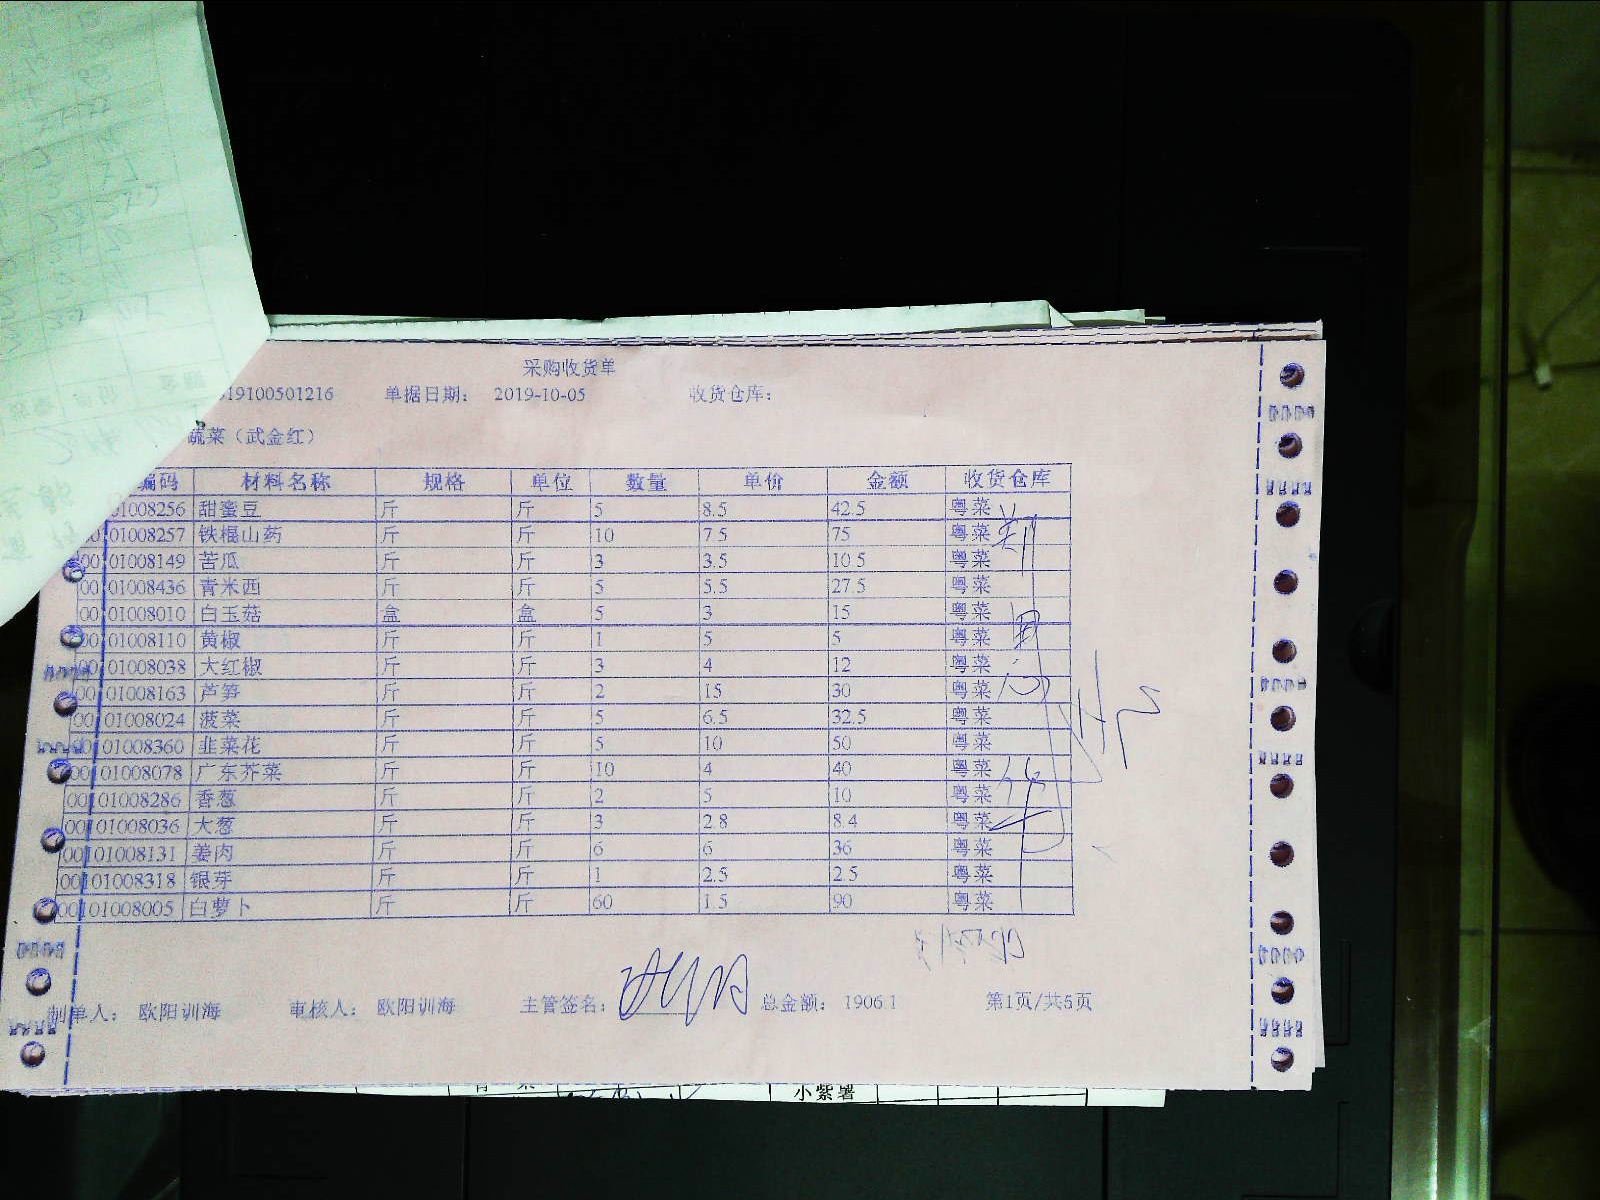 采购收货单
19100501216 单据日期： 2019-10-05 收货仓库：
蔬菜（武金红）
编码 材料名称 规格 单位 数量 单价 金额 收货仓库
01008256 甜蜜豆 斤 斤 5 8.5 42.5 粤菜
00101008257 铁棍山药 斤 斤 10 7.5 75 粤菜
00101008149 苦瓜 斤 斤 3 3.5 10.5 粤菜
00101008436 青米西 斤 斤 5 5.5 27.5 粤菜
00101008010 白玉菇 盒 盒 5 3 15 粤菜
00101008110 黄椒 斤 斤 1 5 5 粤菜
00101008038 大红椒 斤 斤 3 4 12 粤菜
00101008163 芦笋 斤 斤 2 15 30 粤菜
00101008024 菠菜 斤 斤 5 6.5 32.5 粤菜
00101008360 韭菜花 斤 斤 5 10 50 粤菜
00101008078 广东芥菜 斤 斤 10 4 40 粤菜
00101008286 香葱 斤 斤 2 5 10 粤菜
00101008036 大葱 斤 斤 3 2.8 8.4 粤菜
00101008131 姜肉 斤 斤 6 6 36 粤菜
00101008318 银芽 斤 斤 1 2.5 2.5 粤菜
00101008005 白萝卜 斤 斤 60 1.5 90 粤菜
制单人： 欧阳训海 审核人： 欧阳训海 主管签名： 总金额： 1906.1 第1页/共5页
小紫薯